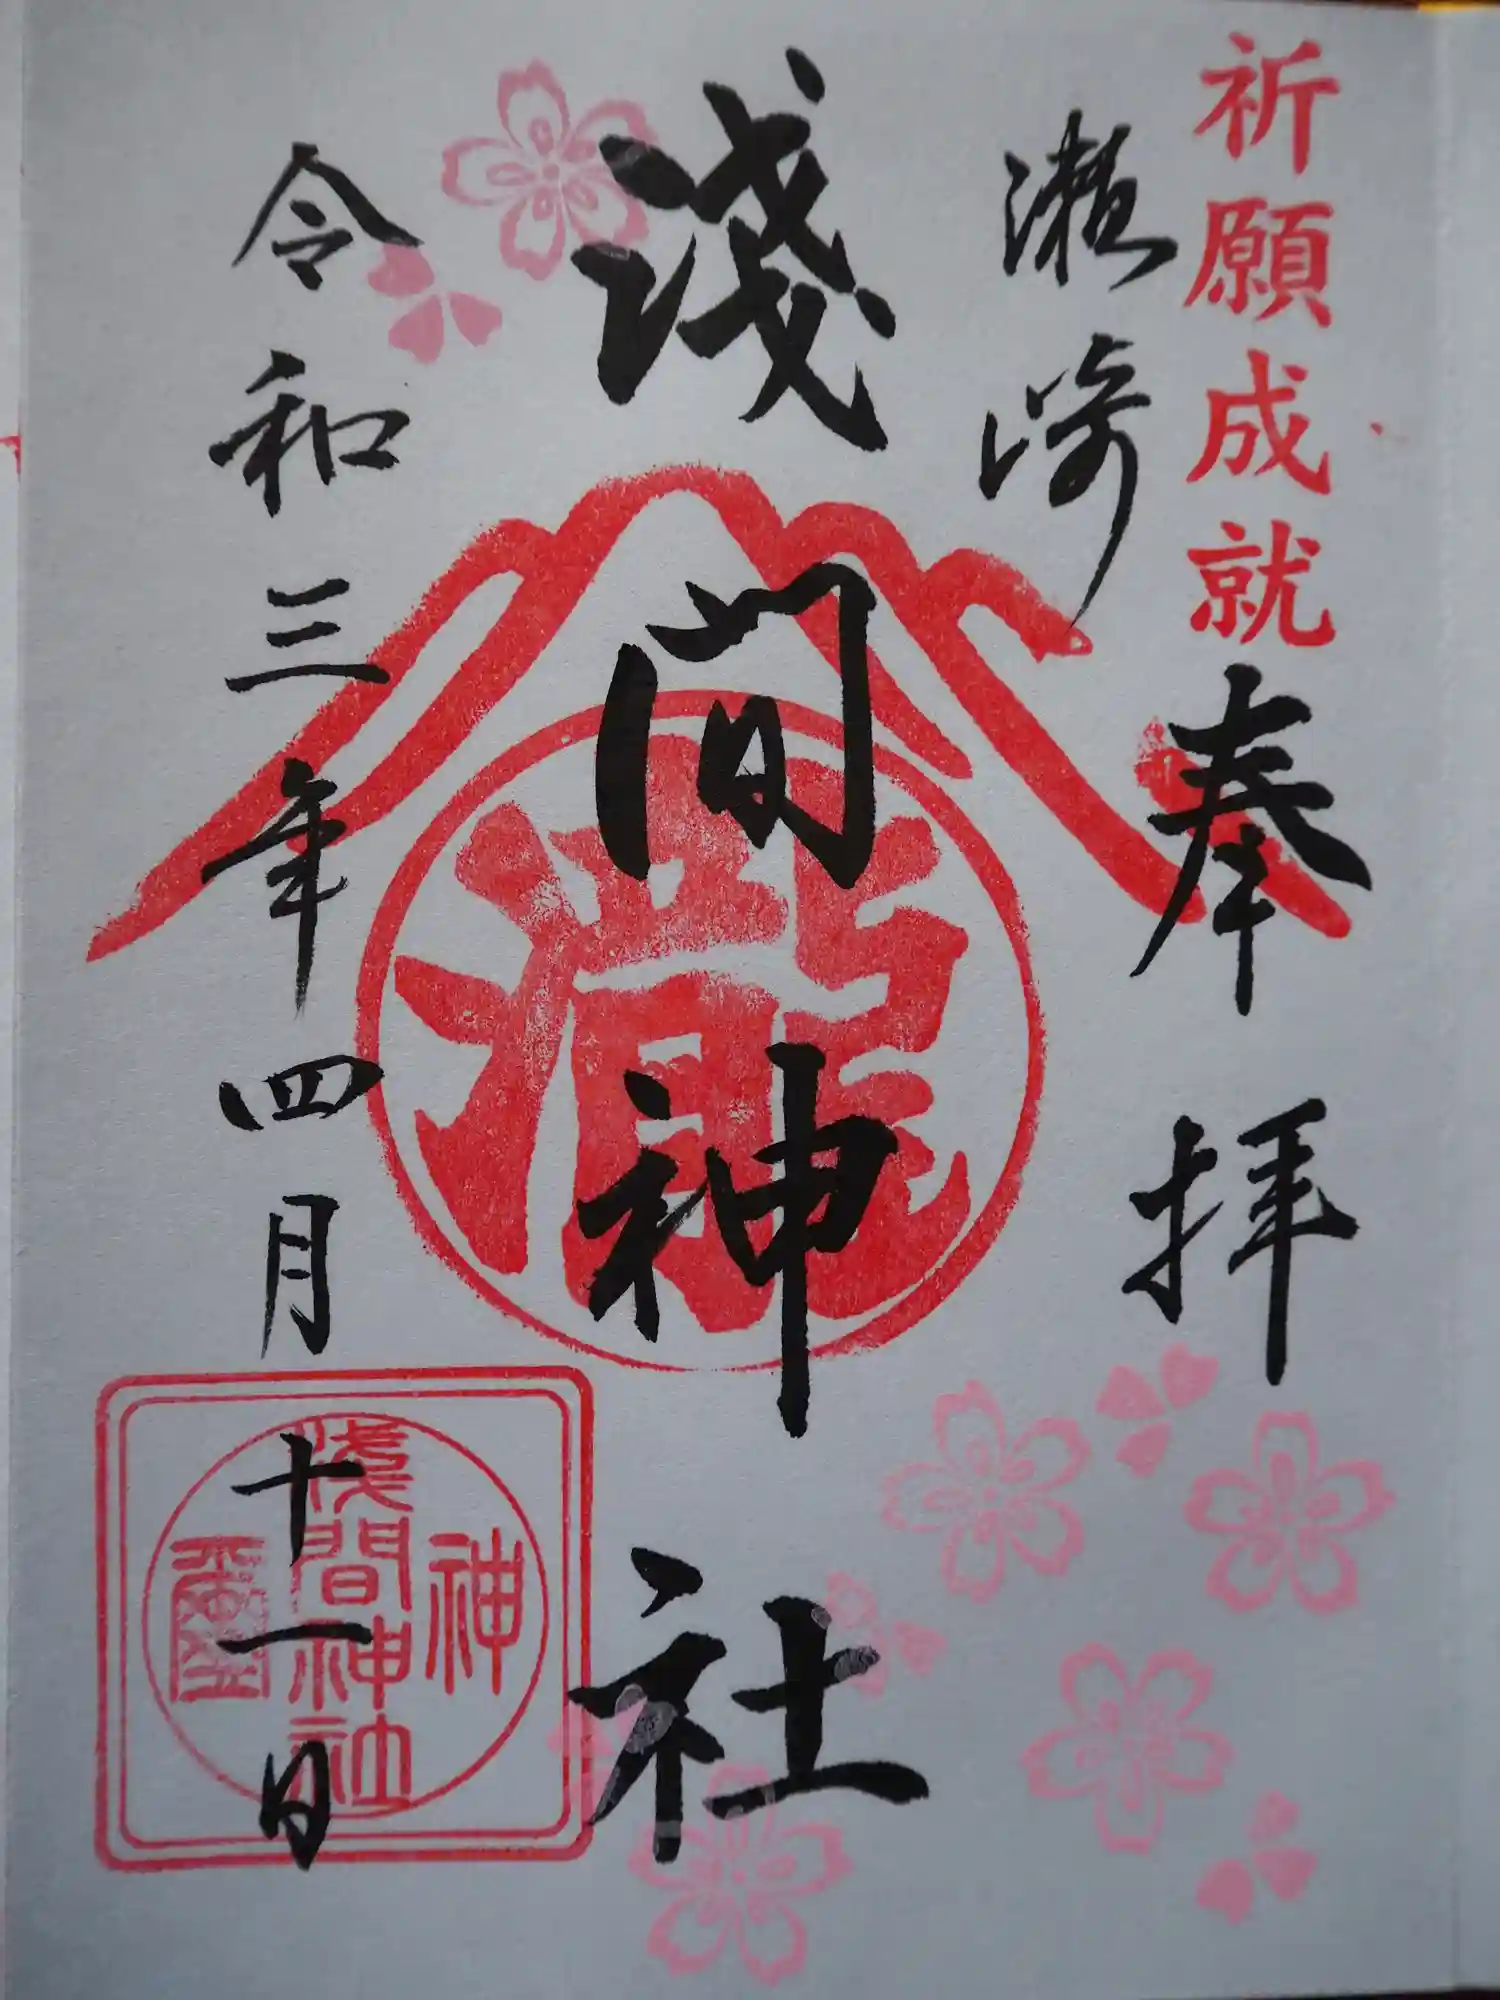 祈願成就
奉拝
瀬崎
淺間神社
瀧
令和三年四月十一日
神
淺間神社
璽